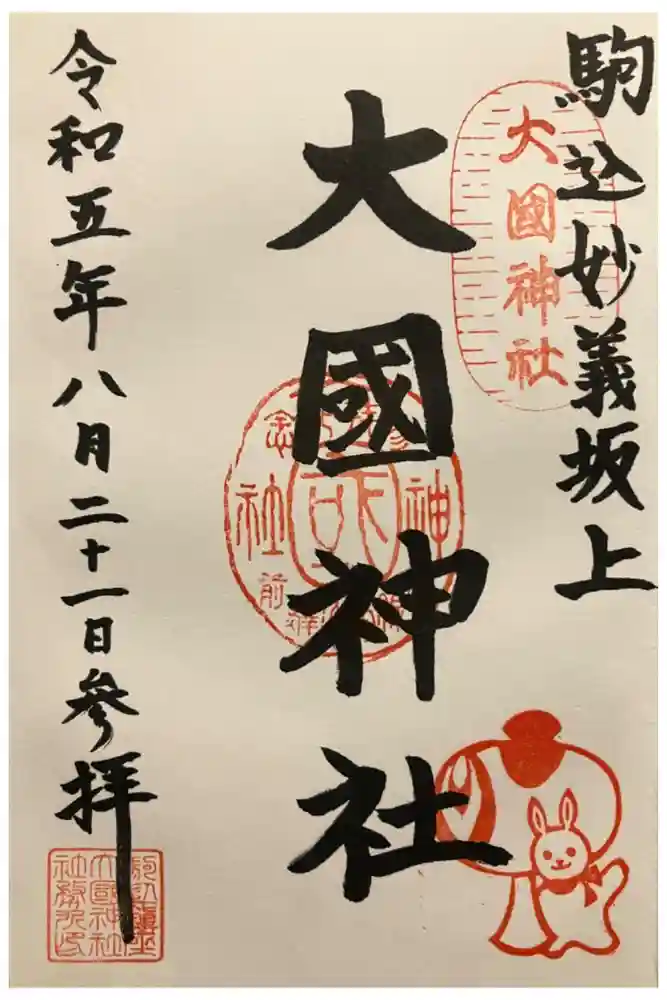 駒込妙義坂上
大國神社
大國神社
令和五年八月二十一日参拝